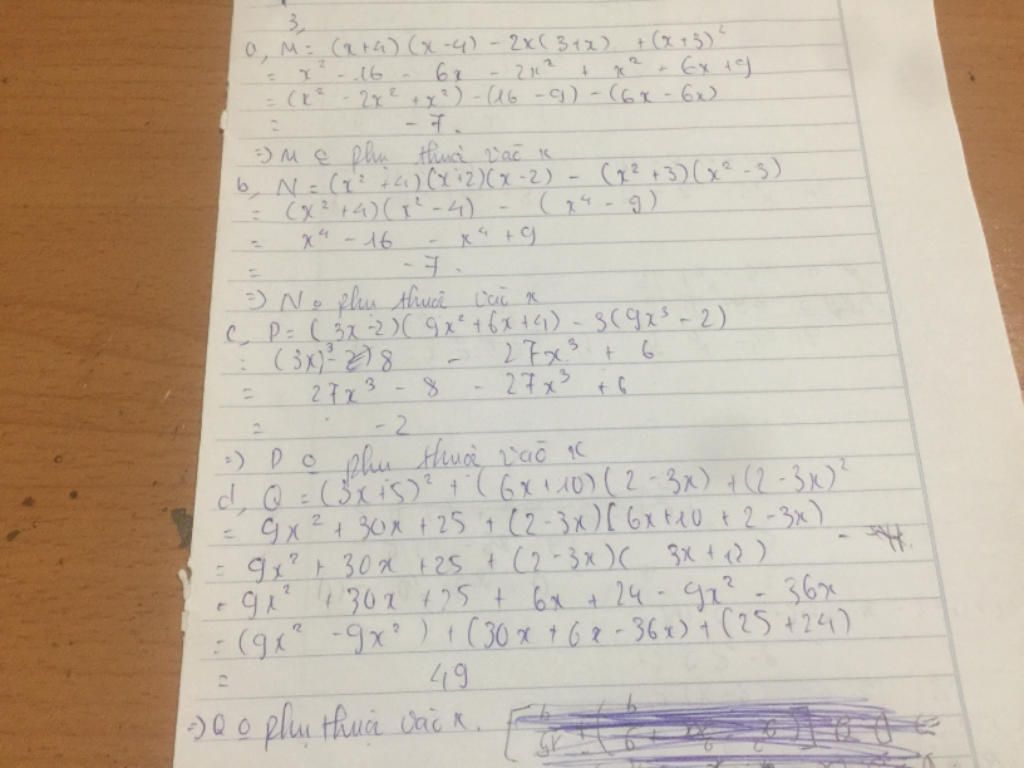 3,
a, M = (x+4)(x-4) - 2x(3+x) + (x+3)²
= x² - 16 - 6x - 2x² + x² + 6x + 9
= (x² - 2x² + x²) - (16 - 9) - (6x - 6x)
= -7.
=> M o phụ thuộc vào x
b, N = (x² + 4)(x+2)(x-2) - (x² + 3)(x² - 3)
= (x² + 4)(x² - 4) - (x⁴ - 9)
= x⁴ - 16 - x⁴ + 9
= -7.
=> N o phụ thuộc vào x
c, P = (3x-2)(9x² + 6x + 4) - 3(9x³ - 2)
= (3x)³ - 8 - 27x³ + 6
= 27x³ - 8 - 27x³ + 6
= -2
=> P o phụ thuộc vào x
d, Q = (3x+5)² + (6x+10)(2-3x) + (2-3x)²
= 9x² + 30x + 25 + (2-3x)(6x+10 + 2-3x)
= 9x² + 30x + 25 + (2-3x)(3x+12)
= 9x² + 30x + 25 + 6x + 24 - 9x² - 36x
= (9x² - 9x²) + (30x + 6x - 36x) + (25 + 24)
= 49
=> Q o phụ thuộc vào x.